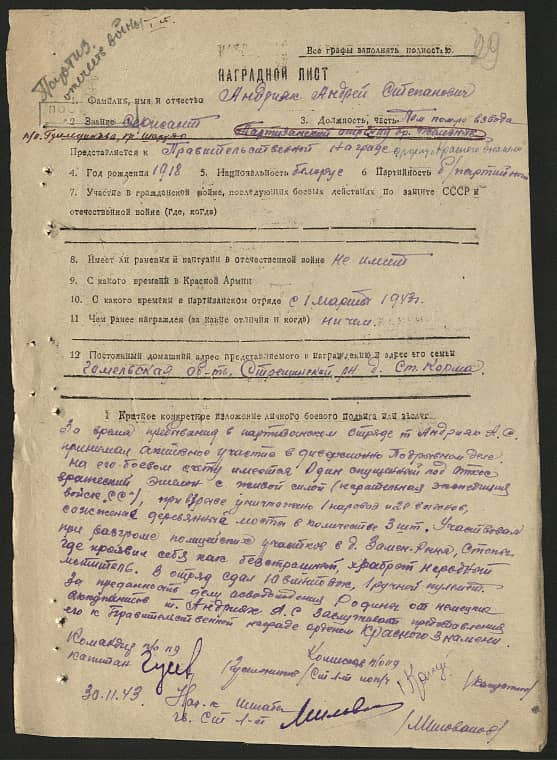 Партиз.
отечеств. войны I ст.
Все графы заполнять полностью.
29
НАГРАДНОЙ ЛИСТ
1. Фамилия, имя и отчество Андрияк Андрей Степанович
2 Звание Сержант 3. Должность, часть Пом ком взвода
Партизанский отряд
Представляется к Правительственной награде орден Красного Знамени
4. Год рождения 1918 5. Национальность белорус 6 Партийность б/партийный
7. Участие в гражданской войне, последующих боевых действиях по защите СССР и
отечественной войне (где, когда)
8. Имеет ли ранения и контузии в отечественной войне не имеет
9. С какого времени в Красной Армии
10. С какого времени в партизанском отряде с 1 марта 1943 г.
11. Чем ранее награжден (за какие отличия и когда) ничем.
12 Постоянный домашний адрес представляемого к награждению и адрес его семьи
Гомельская об-ть, Стрешинский рн д. Ст. Корма
1 Краткое конкретное изложение личного боевого подвига или заслуг
За время пребывания в партизанском отряде т Андрияк А.С.
принимал активное участие в диверсионно подрывном деле
На его боевом счету имеется один спущенный под откос
вражеский эшелон с живой силой (карательная экспедиция
войск "СС"), при взрыве уничтожено 1 паровоз и 28 вагонов,
сожжено деревянных мостов в количестве 3 шт. Участвовал
при разгроме полицейских участков в д.
где проявил себя как бесстрашный, храбрый народный
мститель. В отряд сдал 10 винтовок, 1 ручной пулемет.
За преданность делу освобождения Родины от немецких
оккупантов т. Андрияк А.С заслуживает представления
его к Правительственной награде орденом Красного Знамени.
Командир п/о
капитан Комиссар п/о
Ст л-т
30.11.43 Нач-к штаба
гв. Ст л-т /Милованов/